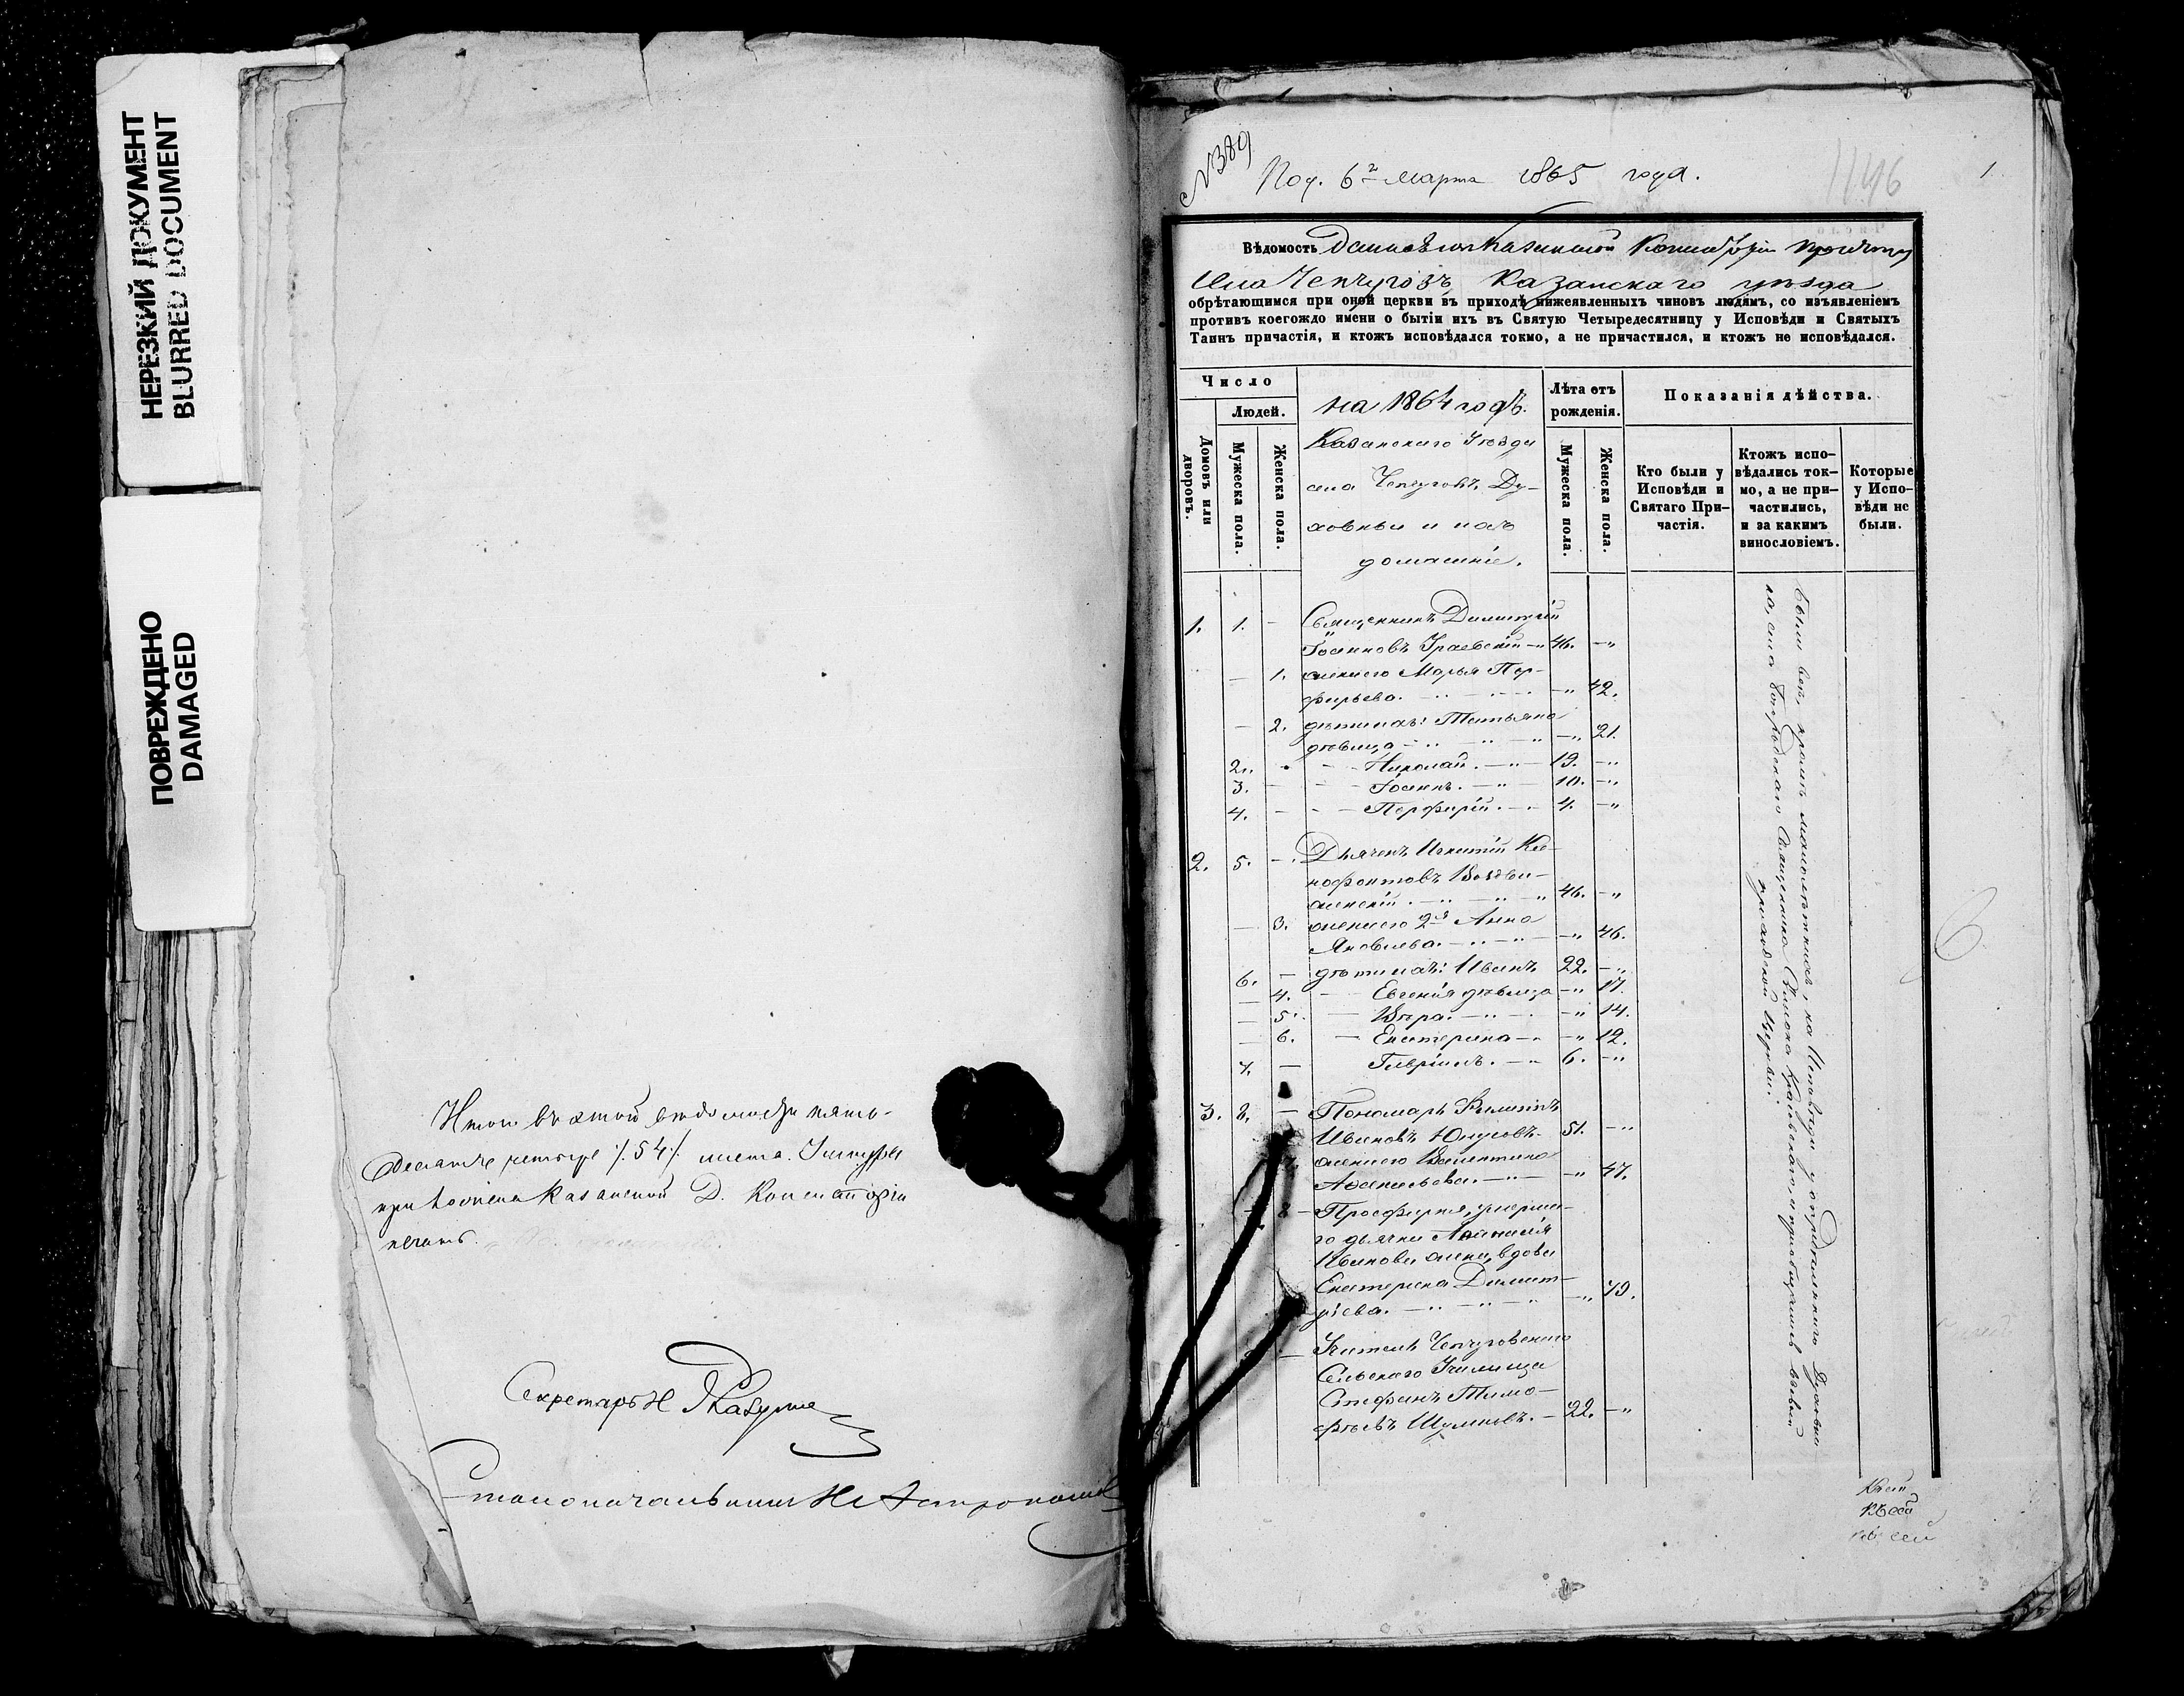 НЕРЕЗКИЙ ДОКУМЕНТ
BLURRED DOCUMENT
ПОВРЕЖДЕНО
DAMAGED
Итого въ этой вѣдомости пять-
десятъ четыре /.54/. листа. Къ шнуру
приложена Казанской Д. Консисторіи
печать.
Секретарь Н
Столоначальникъ
№389
Пол. 6го Марта 1865 года.
1
Вѣдомость Казанской Консисторіи причту
села Чепчуговъ, Казанскаго уѣзда
обрѣтающимся при оной церкви въ приходѣ нижеявленныхъ чиновъ людямъ, со изъявленіемъ
противъ коегождо имени о бытіи ихъ въ Святую Четыредесятницу у Исповѣди и Святыхъ
Таинъ причастія, и ктожъ исповѣдался токмо, а не причастился, и ктожъ не исповѣдался.
Число
Людей.
Домовъ или дворовъ.
Мужеска пола.
Женска пола.
на 1864 годъ.
Казанскаго Уѣзда
села Чепчуговъ Ду-
ховные и ихъ
домашніе.
Лѣта отъ рожденія.
Мужеска пола.
Женска пола.
Показанія дѣйства.
Кто были у Исповѣди и Святаго При-частія.
Ктожъ испо-вѣдались ток-мо, а не при-частились, и за какимъ винословіемъ.
Которые у Испо-вѣди не были.
1. 1. - Священникъ Димитрій
Іоанновъ Граевскій 46. -
- 1. жена его Марья Пор-
фирьева. - 42.
- 2. дѣти ихъ: Татьяна
дѣвица - 21.
2. - Николай. 19. -
3. - Іоаннъ. 10. -
4. - Порфирій. 4. -
2. 5. - Дьячекъ Игнатій Ксе-
нофонтовъ Воздви-
женскій 46. -
- 3. жена его 2я Анна
Яковлева. - 46.
6. - дѣти ихъ: Иванъ 22. -
- 4. Евгенія дѣвица - 17.
- 5. Вѣра. - 14.
- 6. Екатерина - 12.
7. - Гавріилъ. 6. -
3. 8. - Пономарь Филиппъ
Ивановъ Юнусовъ. 51. -
жена его Валентина
Авксентьева. - 47.
- 8 - Просфирня, умерша-
го дьячка Аѳанасія
Иванова жена, вдова
Екатерина Димит-
ріева. - 79.
- Учитель Чепчуговскаго
Сельскаго Училища
Стефанъ Тимо-
фѣевъ Шумковъ. 22. -
Были всѣ, кромѣ малолѣтнихъ, на Исповѣди у Духовни-
ка, села Священника и пріобщались въ своей
приходской Церкви.